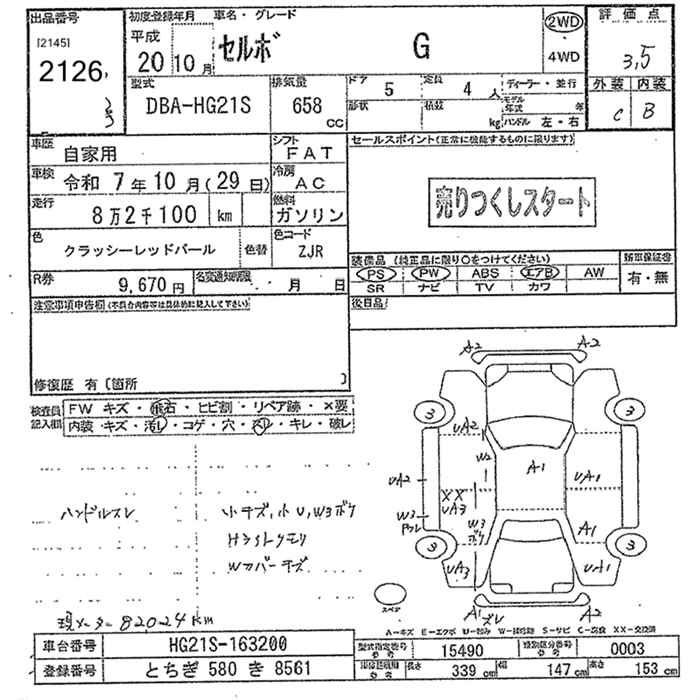 出品番号 初度登録年月 車名・グレード 2WD 評価点
[2145] 平成 セルボ G 4WD 3,5
2126 20 10月
型式 排気量 ドア 5 定員 4人 ディーラー・並行 外装 内装
DBA-HG21S 658 CC 形状 積数 kg モデル年式 年 C B
ハンドル 左・右
車歴 自家用 シフト FAT セールスポイント(正常に機能するものに限ります)
車検 令和 7年10月(29日) 冷房 AC
走行 8万2千100 km 燃料 ガソリン 売りつくしスタート
色 クラッシーレッドパール 色替 色コード ZJR
装備品 (純正品に限り○をつけてください) 新車保証書
R券 9,670円 名変通知期限 月 日 PS PW ABS エアB AW 有・無
SR ナビ TV カワ
注意事項申告欄(不具合内容等は具体的に記入して下さい) 後日品
修復歴 有 [箇所 ]
検査員記入欄 FW キズ・飛石・ヒビ割・リペア跡・×要
内装・キズ・汚レ・コゲ・穴・スレ・キレ・破レ
A2 A2
3 3
UA2
W2 A1 UA1
UA2
XX
UA3
W3 W3 A1
3 3
UA3 UA1
スペア
A1 ズレ A2
ハンドルスレ 小キズ,小U,W3ボケ
Hラストクモリ
Wカバーキズ
現メーター82024km
A-キズ E-エクボ U-凹み W-補修跡 S-サビ C-腐食 XX-交換済
車台番号 HG21S-163200 型式指定番号 参考 15490 類別区分番号 参考 0003
登録番号 とちぎ 580 き 8561 長さ 339 cm 幅 147 cm 高さ 153 cm